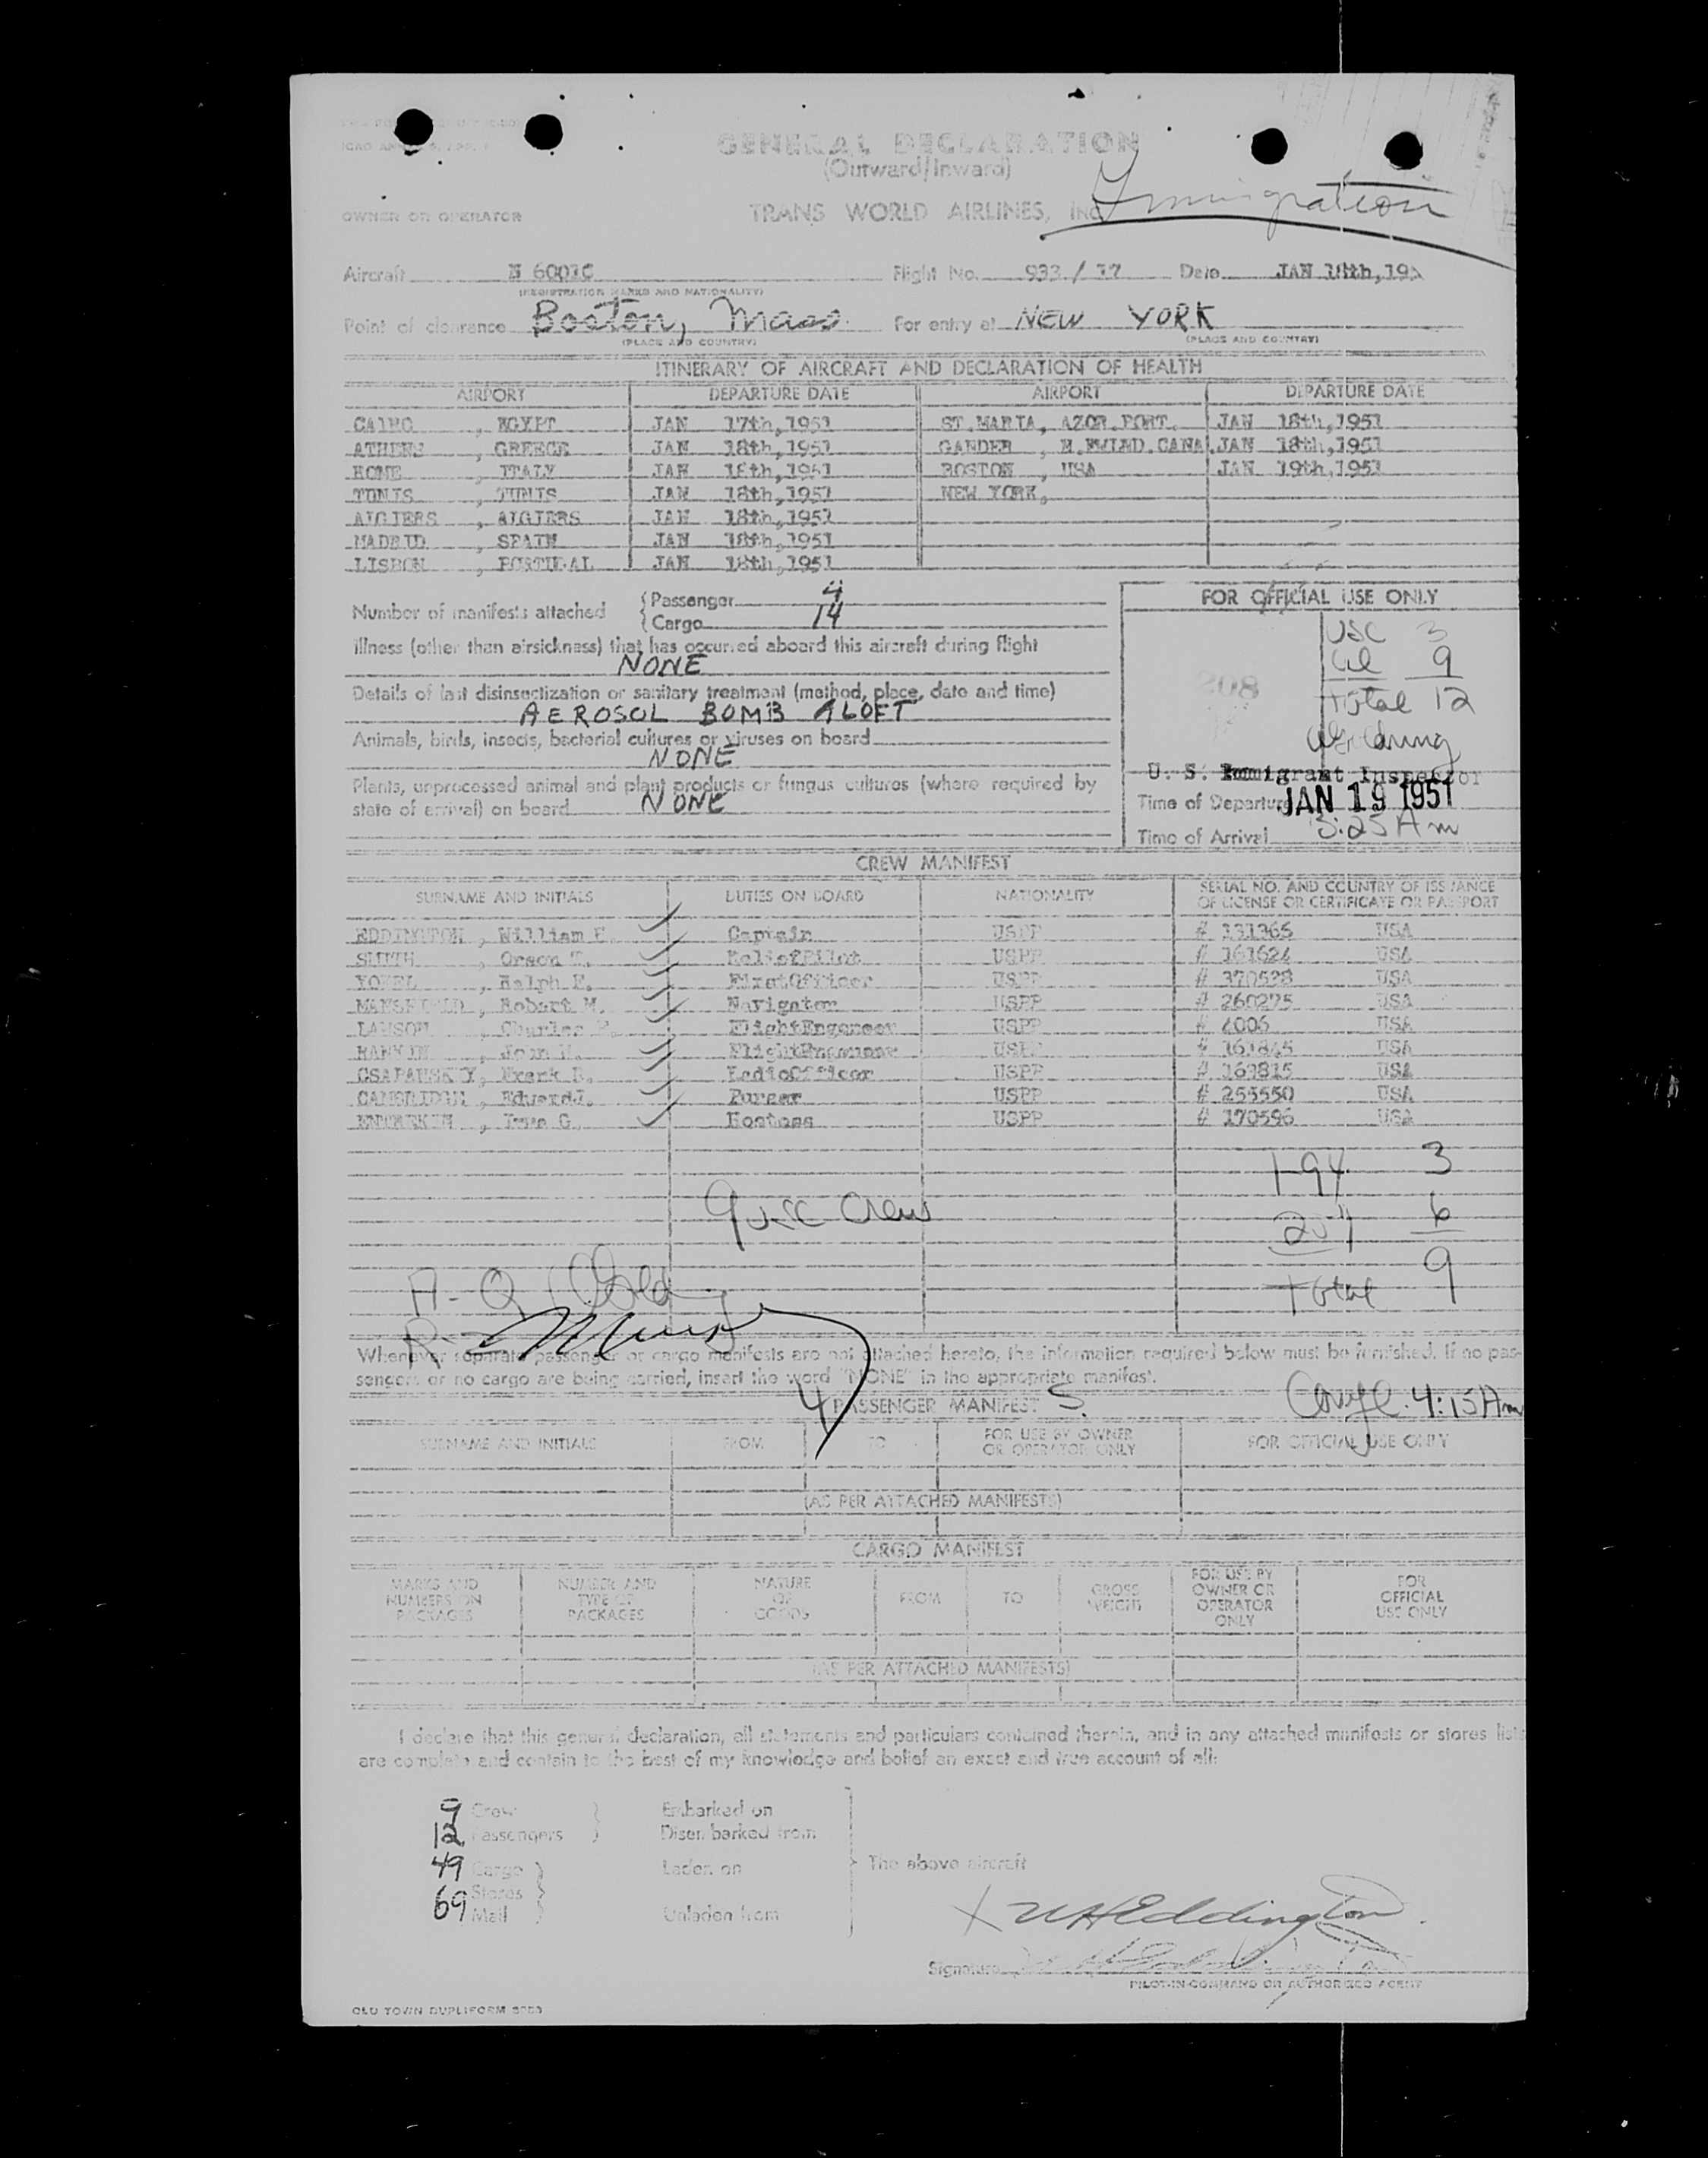 GENERAL DECLARATION
(Outward/Inward)
Immigration
OWNER OR OPERATOR TRANS WORLD AIRLINES, INC.
Aircraft Flight No. 933 / 17 Date JAN 18th, 195
(REGISTRATION MARKS AND NATIONALITY)
Point of clearance Boston, Mass. For entry at NEW YORK
(PLACE AND COUNTRY) (PLACE AND COUNTRY)
ITINERARY OF AIRCRAFT AND DECLARATION OF HEALTH
AIRPORT DEPARTURE DATE AIRPORT DEPARTURE DATE
CAIRO , EGYPT JAN 17th,1951 ST.MARIA, AZOR.PORT. JAN 18th,1951
ATHENS , GREECE JAN 18th,1951 GANDER , CANA. JAN 18th,1951
ROME , ITALY JAN 18th,1951 BOSTON , USA JAN 19th,1951
TUNIS , TUNIS JAN 18th,1951 NEW YORK,
ALGIERS , ALGIERS JAN 18th,1951
MADRID , SPAIN JAN 18th,1951
LISBON , PORTUGAL JAN 18th,1951
Number of manifests attached { Passenger 4
{ Cargo 14
Illness (other than airsickness) that has occurred aboard this aircraft during flight
NONE
Details of last disinsectization or sanitary treatment (method, place, date and time)
AEROSOL BOMB ALOFT
Animals, birds, insects, bacterial cultures or viruses on board
NONE
Plants, unprocessed animal and plant products or fungus cultures (where required by
state of arrival) on board NONE
FOR OFFICIAL USE ONLY
USC 3
9
208
Total 12
U. S. Immigrant Inspector
Time of Departure JAN 19 1951
Time of Arrival 3:25 Am
CREW MANIFEST
SURNAME AND INITIALS DUTIES ON BOARD NATIONALITY SERIAL NO. AND COUNTRY OF ISSUANCE
OF LICENSE OR CERTIFICATE OR PASSPORT
EDDINGTON , William H. Captain USPP # 131365 USA
SMITH , Orson T. ReliefPilot USPP # 161624 USA
Ralph E. FirstOfficer USPP # 370528 USA
MANSFIELD, Robert M. Navigator USPP # 260275 USA
LAWSON , Charles FlightEngeneer USPP # 4006 USA
John FlightEngeneer USPP # 161845 USA
Frank R. RadioOfficer USPP # 169815 USA
CAMBRIDGE , EdwardJ. Purser USPP # 255550 USA
Hostess USPP # 170596 USA
1-94 3
9 USC Crew
6
Total 9
Whenever separate passenger or cargo manifests are not attached hereto, the information required below must be furnished. If no pas-
sengers or no cargo are being carried, insert the word "NONE" in the appropriate manifest.
4 PASSENGER MANIFEST S. 4:15 Am
SURNAME AND INITIALS FROM TO FOR USE BY OWNER
OR OPERATOR ONLY FOR OFFICIAL USE ONLY
(AS PER ATTACHED MANIFESTS)
CARGO MANIFEST
MARKS AND
NUMBERS ON
PACKAGES NUMBER AND
TYPE OF
PACKAGES NATURE
OF
GOODS FROM TO GROSS
WEIGHT FOR USE BY
OWNER OR
OPERATOR
ONLY FOR
OFFICIAL
USE ONLY
(AS PER ATTACHED MANIFESTS)
I declare that this general declaration, all statements and particulars contained therein, and in any attached manifests or stores lists
are complete and contain to the best of my knowledge and belief an exact and true account of all:
9 Crew } Embarked on
12 Passengers } Disembarked from
49 Cargo } Laden on } The above aircraft
Stores }
69 Mail } Unladen from
X WHEddington
Signature
PILOT-IN-COMMAND OR AUTHORIZED AGENT
OLD TOWN DUPLIFORM